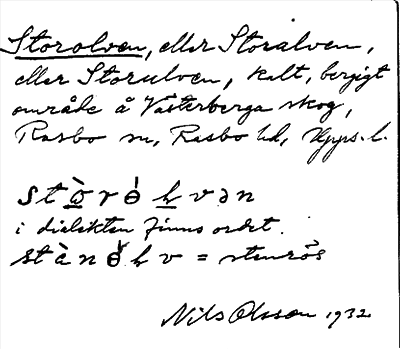 Storolven, eller Storalven,
eller Storulven, kalt, bergigt
område å Västerberga skog,
Rasbo sn, Rasbo hd, Upps. l.
stòròlvən
i dialekten finns ordet
stànòlv = stenrös
Nils Olsson 1932